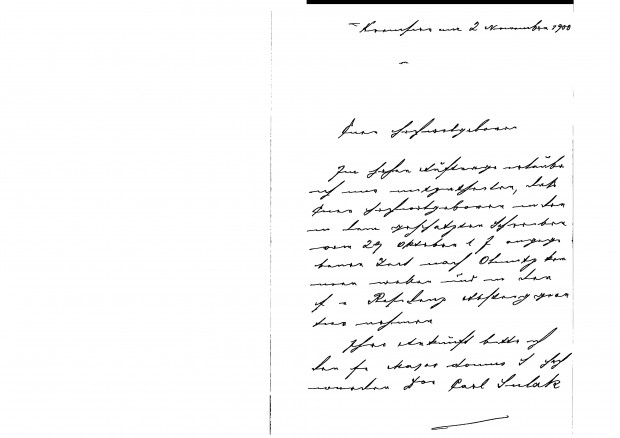 Kremsier am 2 November
Euer Hochwohlgeboren
Im hohen Auftrage erlaube
ich mir mitzutheilen, daß
Euer Hochwohlgeboren in der
in dem geschätzten Schreiben
vom 29 Oktober l J angege
benen Zeit nach Olmütz kom
men wollen und in der
f e Residenz Absteigequar
tier nehmen
Ihre Ankunft bitte ich
dem fe Major domus Hoch
würden Carl Sulak